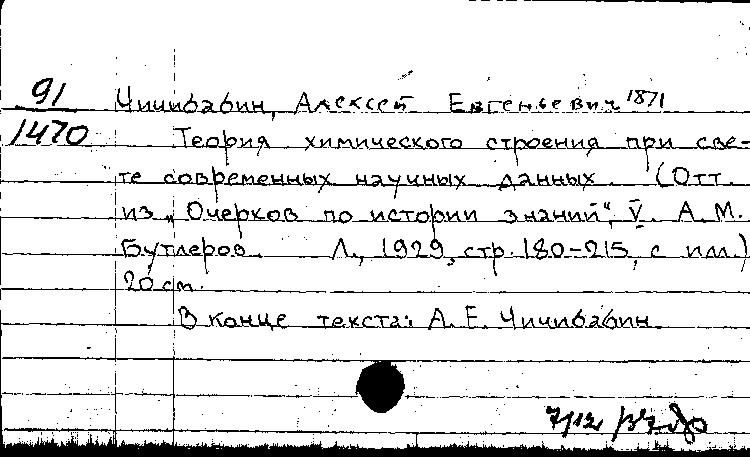 91 Чичибабин, Алексей Евгеньевич 1871
1470 Теория химического строения при све-
те современных научных данных. (Отт.
из „Очерков по истории знаний", V. А. М.
Бутлеров. Л., 1929, стр. 180-215, с илл.)
20 см.
В конце текста: А. Е. Чичибабин.
7/12